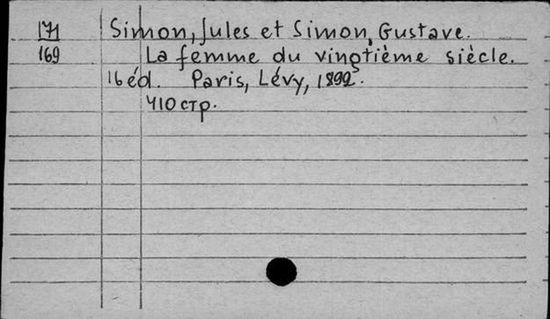 171 Simon, Jules et Simon, Gustave.
169 La femme du vingtième siècle.
16 éd. Paris, Lévy, 1892.
410 стр.